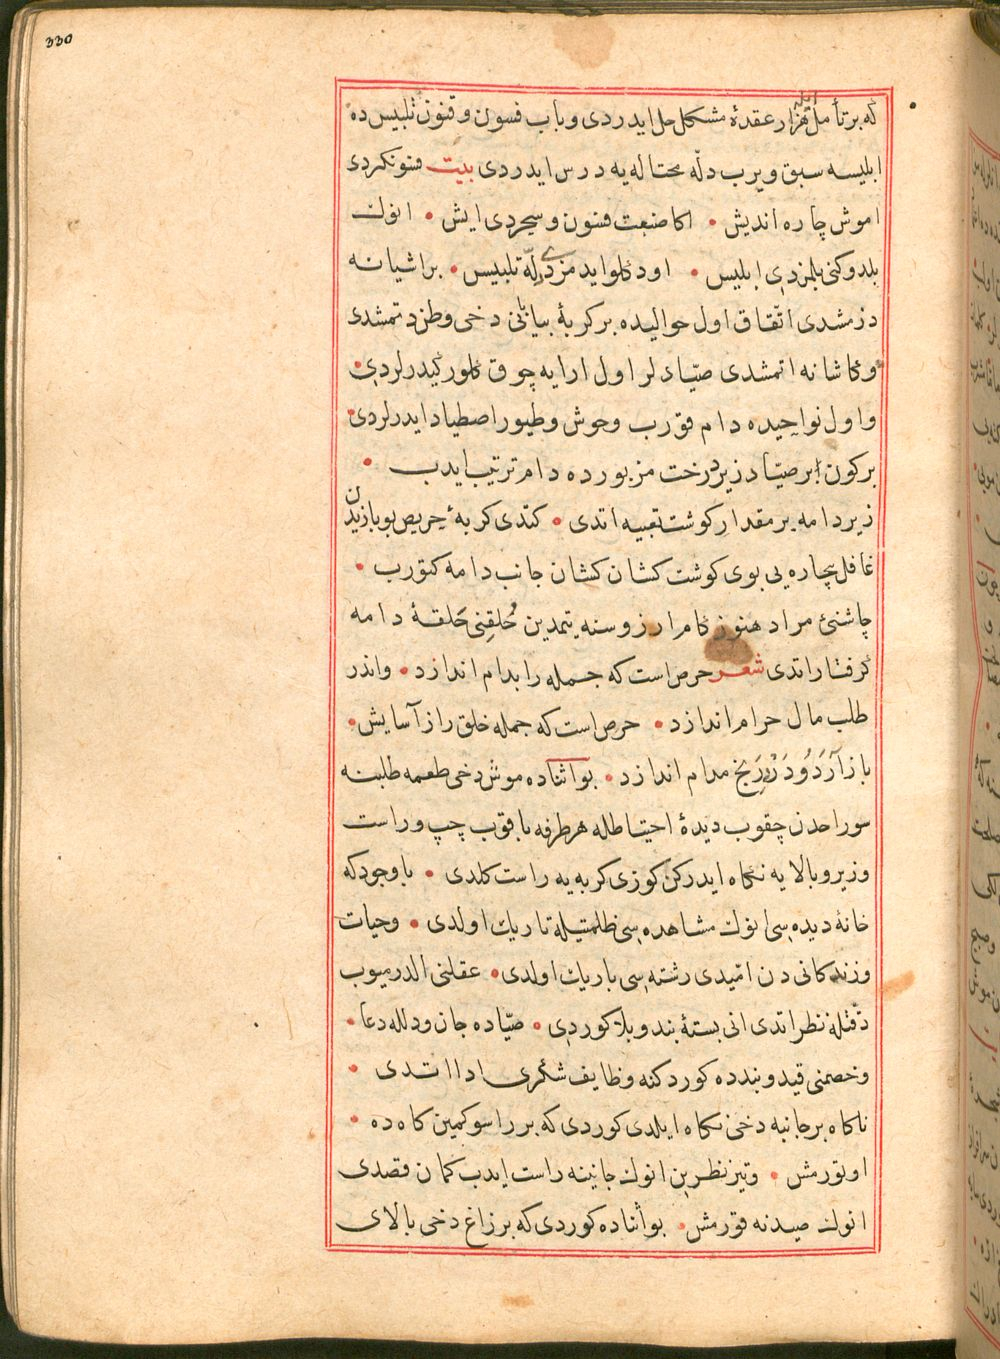 330
كه بر تأمل ايله هزار عقدهٔ مشكل حل ايدردى و باب فسون و فنون تلبيس ده
ابليسه سبق ويرب دلّهٔ محتاله يه درس ايدردى بيت فنونكردى
اموش چاره انديش • اكا صنعت فنون و سحردى ايش • انوك
بلدوكنى بلمزدى ابليس • اودكلو ايدمزدى دلّه تلبيس • بر اشيانه
دزمشدى اتّفاق اول حواليده بر كربهٔ بيابانى دخى وطن دتمشدى
و كاشانه اتمشدى صيّادلر اول ارايه چوق كلور كيدرلردى •
و اول نواحيده دام قورب وحوش و طيور اصطياد ايدرلردى •
بر كون بر صيّاد زير درخت مزبورده دام ترتيب ايدب •
زير دامه بر مقدار كوشت تعبيه اتدى • كتدى كربهٔ حريص بو بازيدن
غافل بيچاره يى بوى كوشت كشان كشان جانب دامه كتورب •
چاشنئ مراد هنوز كام ارزوسنه يتمدين حُلقنى حَلقهٔ دامه
كرفتار اتدى شعر حرص است كه جمله را بدام اندازد • واندر
طلب مال حرام اندازد • حرص است كه جمله خلق را ز آسايش •
باز آرَد و دَر رنج مدام اندازد • بو اثناده موش دخى طعمه طلبنه
سوراخدن چقوب ديدهٔ احتياطله هر طرفه باقوب چپ و راست
و زير و بالايه نكاه ايدركن كوزى كربه يه راست كلدى • با وجود كه
خانهٔ ديده سى انوك مشاهده سى ظلمتيله تاريك اولدى • و حيات
و زندكانى دن امّيدى رشته سى باريك اولدى • عقلنى الدرميوب
دقّتله نظر اتدى انى بستهٔ بند و بلا كوردى • صيّاده جان و دلله دعا •
و خصمنى قيد و بندده كوردكنه وظايف شكرى ادا اتدى •
ناكاه بر جانبه دخى نكاه ايلدى كوردى كه بر راسو كمين كاه ده •
اوتورمش • و تيز نظرين انوك جانبنه راست ايدب كمان قصدى
انوك صيدنه قورمش • بو اثناده كوردى كه بر زاغ دخى بالاى